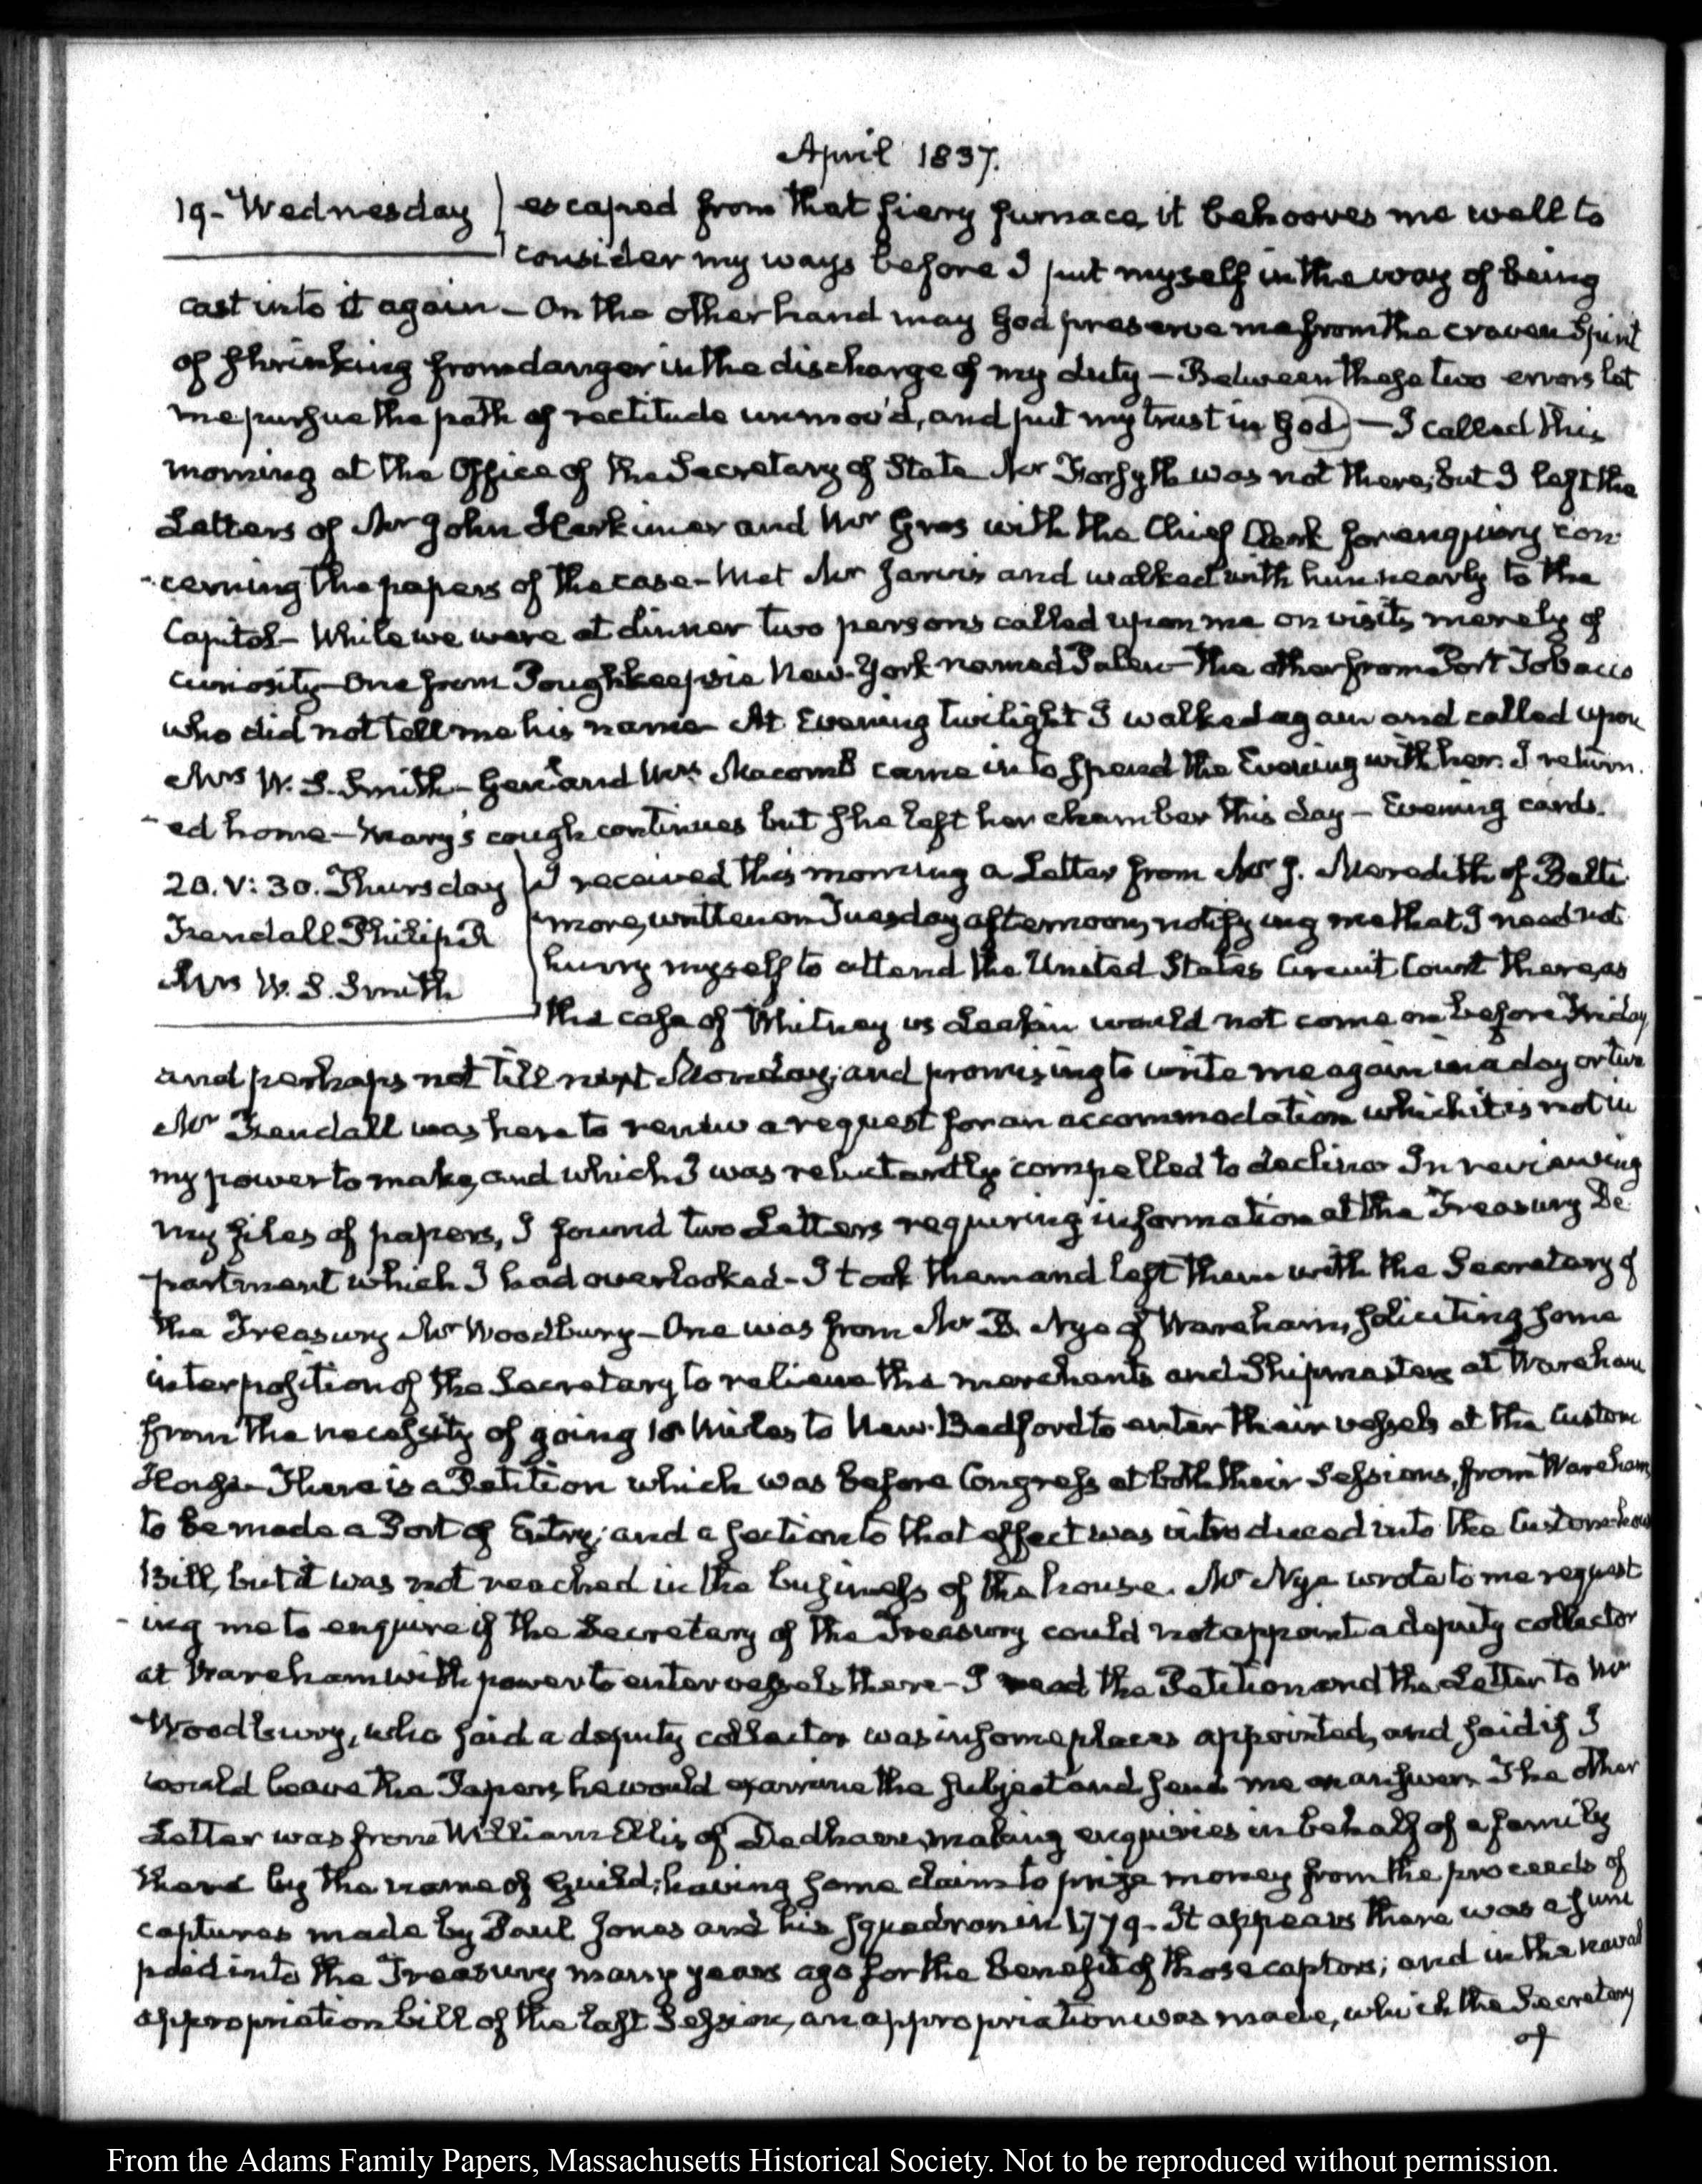 April 1837.
19- Wednesday
escaped from that fiery furnace, it behooves me well to
consider my ways before I put myself in the way of being
cast into it again - On the other hand may God preserve me from the craven Spirit
of shrinking from danger in the discharge of my duty - Between these two errors let
me pursue the path of rectitude unmov'd, and put my trust in God - I called this
morning at the Office of the Secretary of State Mr Forsyth was not there; but I left the
Letters of Mr John Herkimer and Mr Gros with the Chief Clerk for enquiry con
-cerning the papers of the case - Met Mr Jarvis and walked with him nearly to the
Capitol - While we were at dinner two persons called upon me on visits merely of
curiosity - One from Poughkeepsie New-York named Palen - The other from Port Tobacco
who did not tell me his name - At Evening twilight I walked again and called upon
Mrs W. S. Smith - Genl and Mrs Macomb came in to spend the Evening with her. I return.
-ed home - Mary's cough continues but she left her chamber this day - Evening cards.
20. V: 30. Thursday
Fendall Philip R
Mrs W. S. Smith
I received this morning a Letter from Mr J. Meredith of Balti
more, written on Tuesday afternoon, notifying me that I need not
hurry myself to attend the United States Circuit Court there, as
the case of Whitney vs Leakin would not come on before Friday
and perhaps not till next Monday; and promising to write me again in a day or two
Mr Fendall was here to renew a request for an accommodation which it is not in
my power to make, and which I was reluctantly compelled to decline. In reviewing
my files of papers, I found two Letters requiring information at the Treasury De
partment which I had overlooked - I took them and left them with the Secretary of
the Treasury Mr Woodbury - One was from Mr B. Nye of Wareham, soliciting some
interposition of the Secretary to relieve the merchants and Shipmasters at Wareham
from the necessity of going 18 Miles to New-Bedford to enter their vessels at the Custom
House - There is a Petition which was before Congress at both their Sessions, from Wareham
to be made a Port of Entry; and a section to that effect was introduced into the Custom-hou
Bill, but it was not reached in the business of the house. Mr Nye wrote to me request
-ing me to enquire if the Secretary of the Treasury could not appoint a deputy collector
at Wareham with power to enter vessels there - I read the Petition and the Letter to Mr
Woodbury, who said a deputy collector was in some places appointed, and said if I
would leave the Papers, he would examine the subject and send me an answer. The other
Letter was from William Ellis of Dedham, making enquiries in behalf of a family
there by the name of Guild; having some claim to prize money from the proceeds of
captures made by Paul Jones and his squadron in 1779 - It appears there was a sum
paid into the Treasury many years ago for the benefit of those captors; and in the naval
appropriation bill of the last Session, an appropriation was made, which the Secretary
of
From the Adams Family Papers, Massachusetts Historical Society. Not to be reproduced without permission.